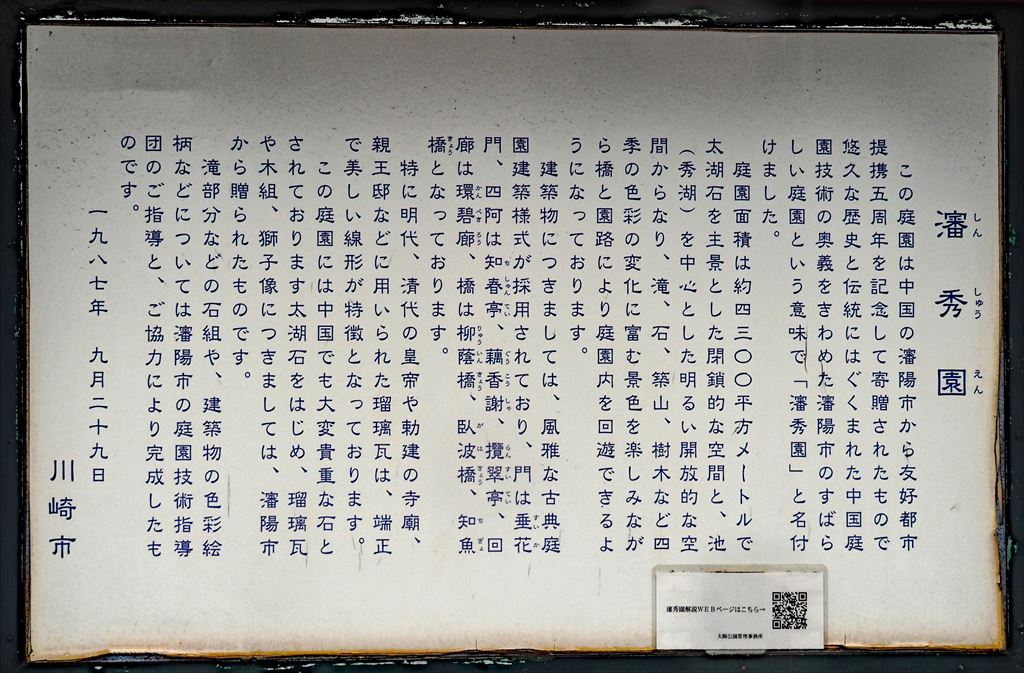 瀋秀園
しん しゅう えん
この庭園は中国の瀋陽市から友好都市
提携五周年を記念して寄贈されたもので
悠久な歴史と伝統にはぐくまれた中国庭
園技術の奥義をきわめた瀋陽市のすばら
しい庭園という意味で「瀋秀園」と名付
けました。
庭園面積は約四三〇〇平方メートルで
太湖石を主景とした閉鎖的な空間と、池
(秀湖)を中心とした明るい開放的な空
間からなり、滝、石、築山、樹木など四
季の色彩の変化に富む景色を楽しみなが
ら橋と園路により庭園内を回遊できるよ
うになっております。
建築物につきましては、風雅な古典庭
園建築様式が採用されており、門は垂花
すいか
門、四阿は知春亭、藕香謝、攬翠亭、回
ちしゅんてい ぐうこうしゃ らんすいてい
廊は環碧廊、橋は柳蔭橋、臥波橋、知魚
かんぺきろう りゅういんきょう がはきょう ちぎょ
橋となっております。
きょう
特に明代、清代の皇帝や勅建の寺廟、
親王邸などに用いられた瑠璃瓦は、端正
で美しい線形が特徴となっております。
この庭園には中国でも大変貴重な石と
されております太湖石をはじめ、瑠璃瓦
や木組、獅子像につきましては、瀋陽市
から贈られたものです。
滝部分などの石組や、建築物の色彩絵
柄などについては瀋陽市の庭園技術指導
団のご指導と、ご協力により完成したも
のです。
一九八七年 九月二十九日
川崎市
瀋秀園解説WEBページはこちら→
大師公園管理事務所